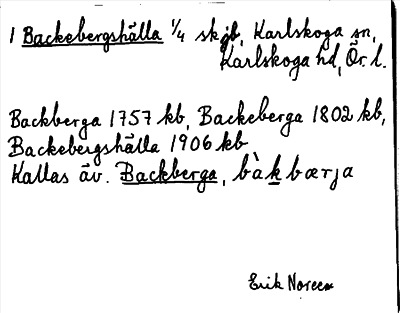 1 Backebergshälla ¼ skjb, Karlskoga sn,
Karlskoga hd, Ör. l.
Backberga 1757 kb, Backeberga 1802 kb,
Backebergshälla 1906 kb
Kallas äv. Backberga, bàkbærja
Erik Noreen